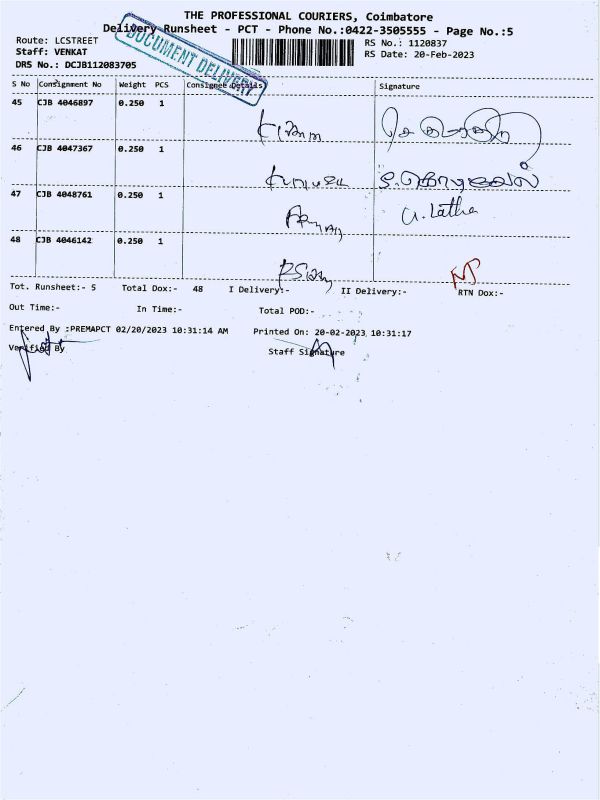 THE PROFESSIONAL COURIERS, Coimbatore
Delivery Runsheet - PCT - Phone No.:0422-3505555 - Page No.:5
Route: LCSTREET
RS No.: 1120837
Staff: VENKAT
RS Date: 20-Feb-2023
DRS No.: DCJB112083705
DOCUMENT DELIVERY
S No Consignment No Weight PCS Consignee Details Signature
45 CJB 4046897 0.250 1
46 CJB 4047367 0.250 1
47 CJB 4048761 0.250 1 Latha
48 CJB 4046142 0.250 1
Tot. Runsheet:- 5 Total Dox:- 48 I Delivery:- II Delivery:- RTN Dox:-
Out Time:- In Time:- Total POD:-
Entered By :PREMAPCT 02/20/2023 10:31:14 AM Printed On: 20-02-2023 10:31:17
Verified By Staff Signature